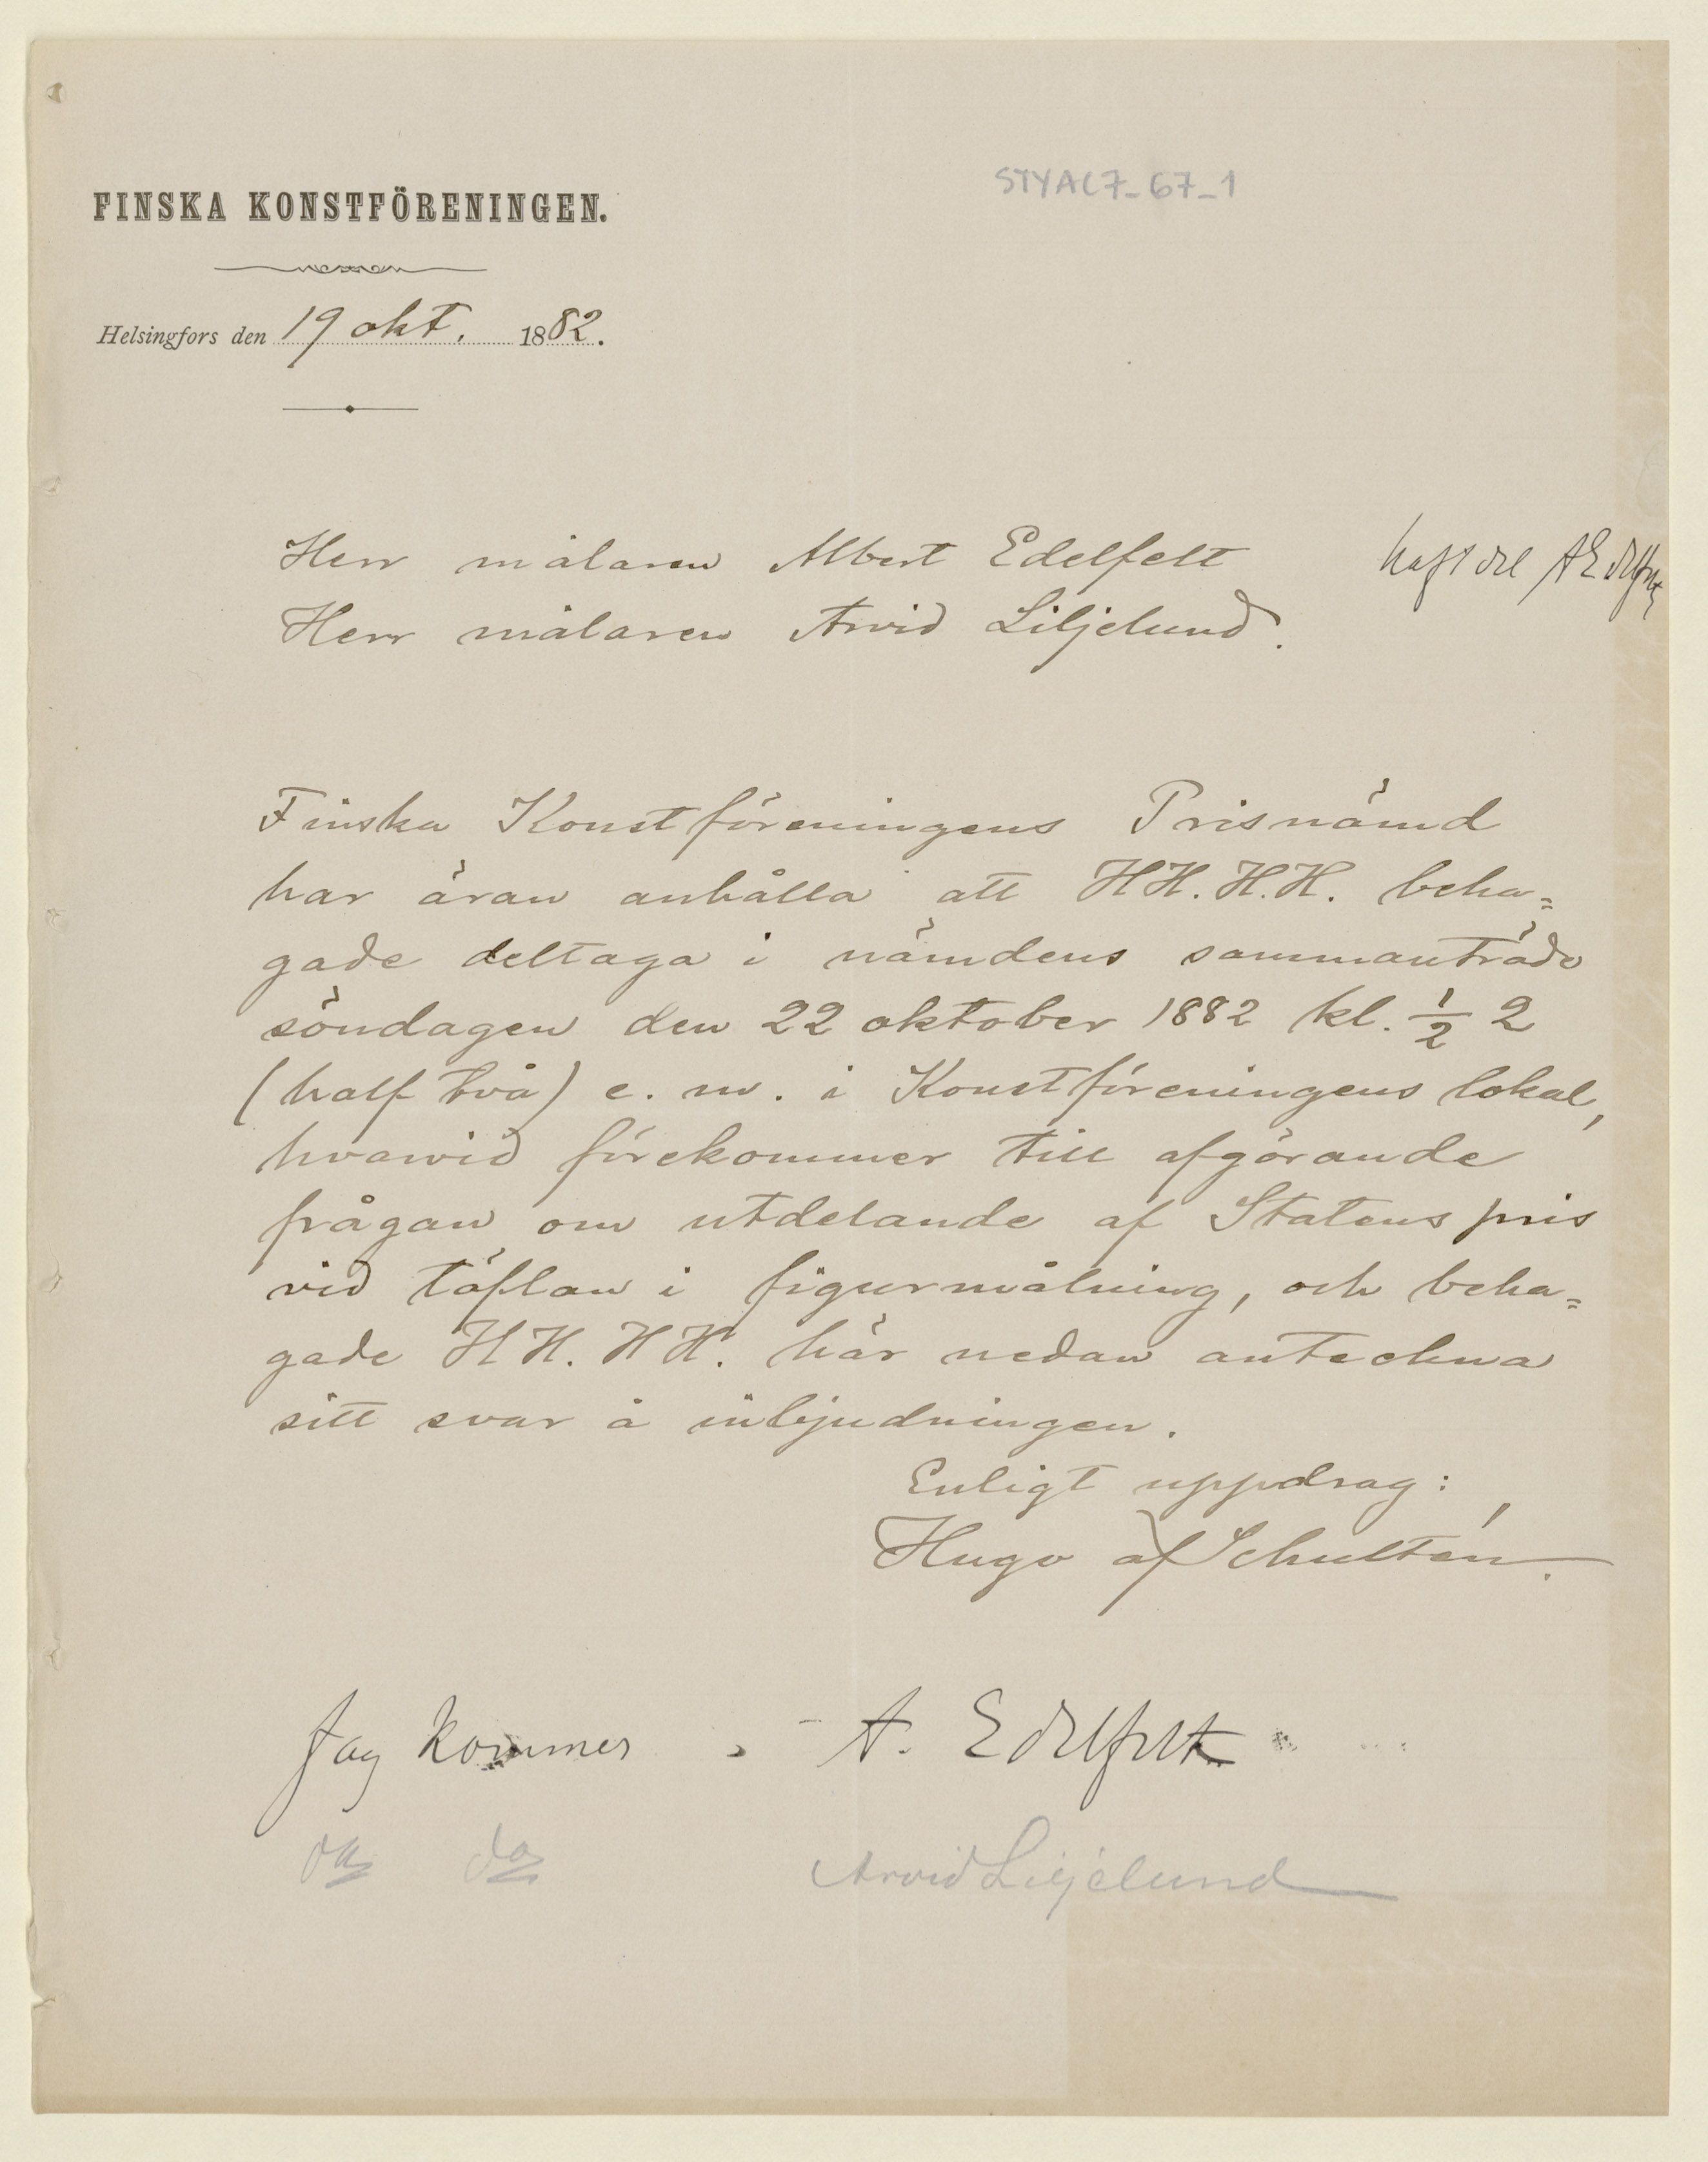 STYAL7_67_1
FINSKA KONSTFÖRENINGEN.
Helsingfors den 19 okt. 1882.
Herr målaren Albert Edelfelt
haft del AEdelfelt
Herr målaren Arvid Liljelund.
Finska Konstföreningens Prisnämd
har äran anhålla att HH. H.H. beha=
gade deltaga i nämdens sammanträde
söndagen den 22 oktober 1882 kl. 1/2 2
(half två) e. m. i Konstföreningens lokal,
hvarvid förekommer till afgörande
frågan om utdelande af Statens pris
vid täflan i figurmålning, och beha=
gade HH. HH. här nedan anteckna
sitt svar å inbjudningen.
Enligt uppdrag:
Hugo af Schultén.
Jag kommer. - A. Edelfelt
do do Arvid Liljelund